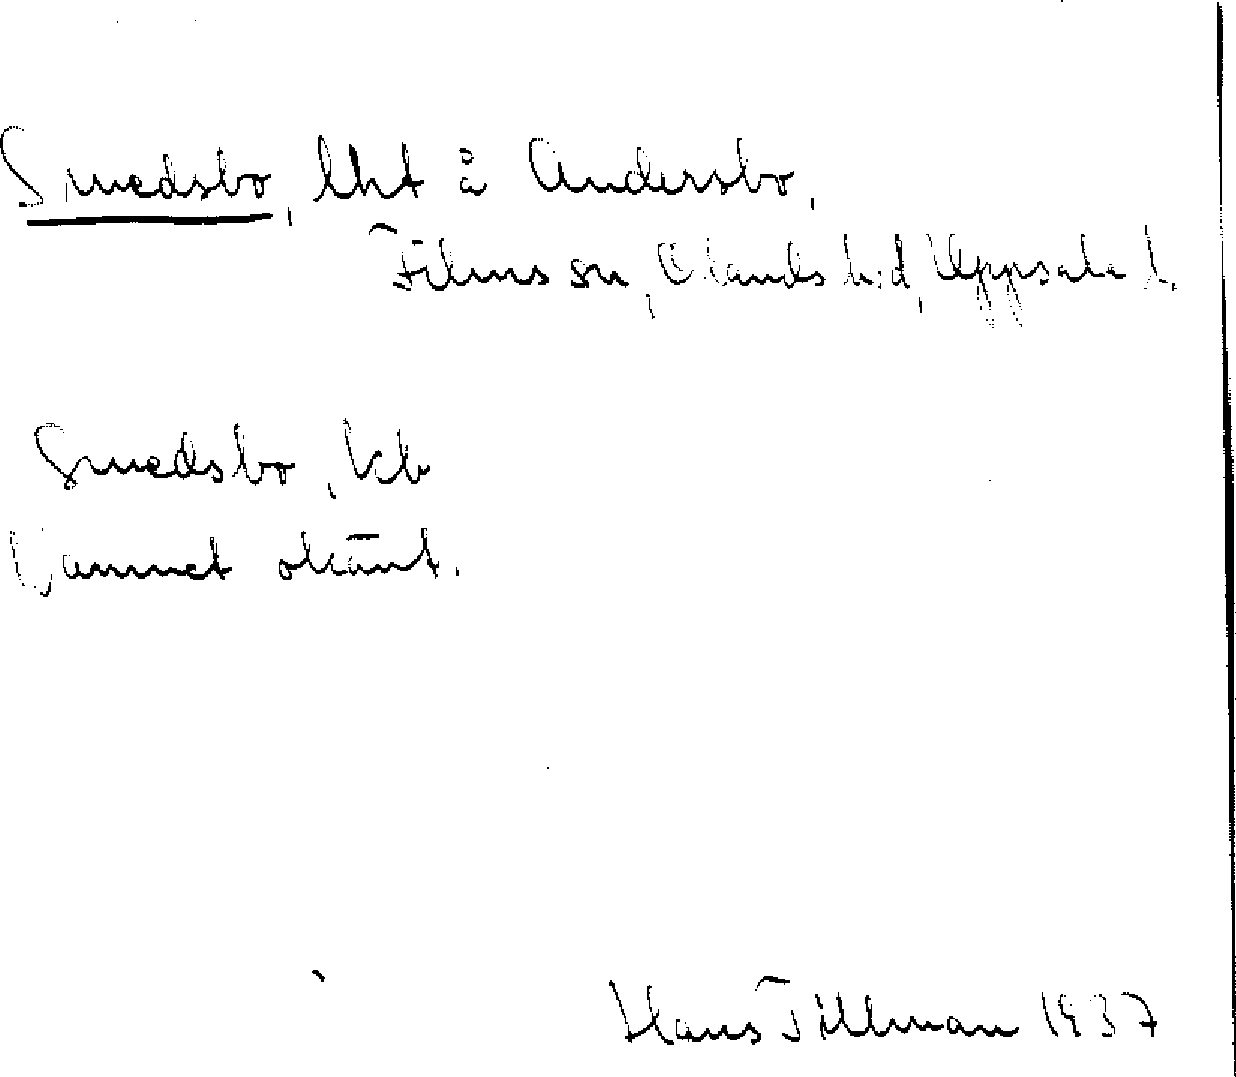 Smedsbo, lht å Andersbo,
Films sn, Olands hd, Uppsala l.
Smedsbo, kb
Namnet okänt.
Hans Tillman 1937